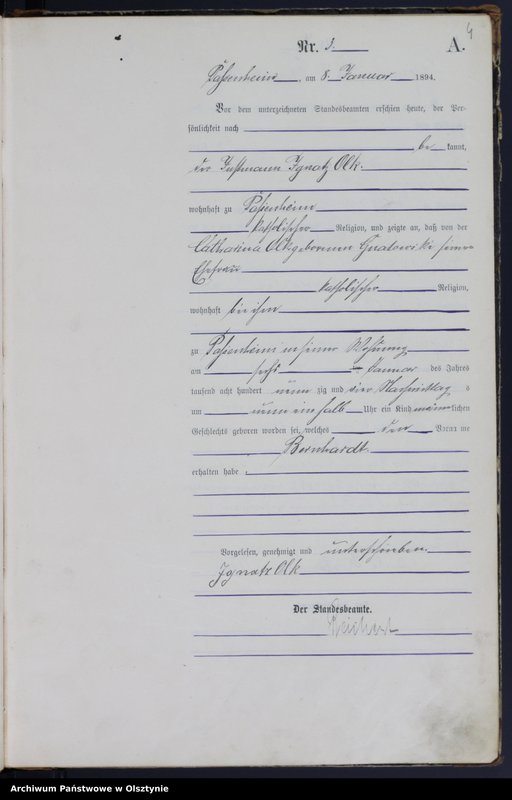 4
Nr. 3 A.
Passenheim, am 8. Januar 1894.
Vor dem unterzeichneten Standesbeamten erschien heute, der Per-
sönlichkeit nach
be kannt,
der Ignatz Olk.
wohnhaft zu Passenheim
katholischer Religion, und zeigte an, daß von der
Catharina Olk geborenen seiner
Ehefrau
katholischer Religion,
wohnhaft bei ihm
zu Passenheim in seiner Wohnung
am sechs ten Januar des Jahres
tausend acht hundert neun zig und vier Nachmittag s
um neun ein halb Uhr ein Kind männlichen
Geschlechts geboren worden sei, welches den Vorna me
Bernhardt.
erhalten habe.
Vorgelesen, genehmigt und unterschrieben.
Ignatz Olk
Der Standesbeamte.
Archiwum Państwowe w Olsztynie